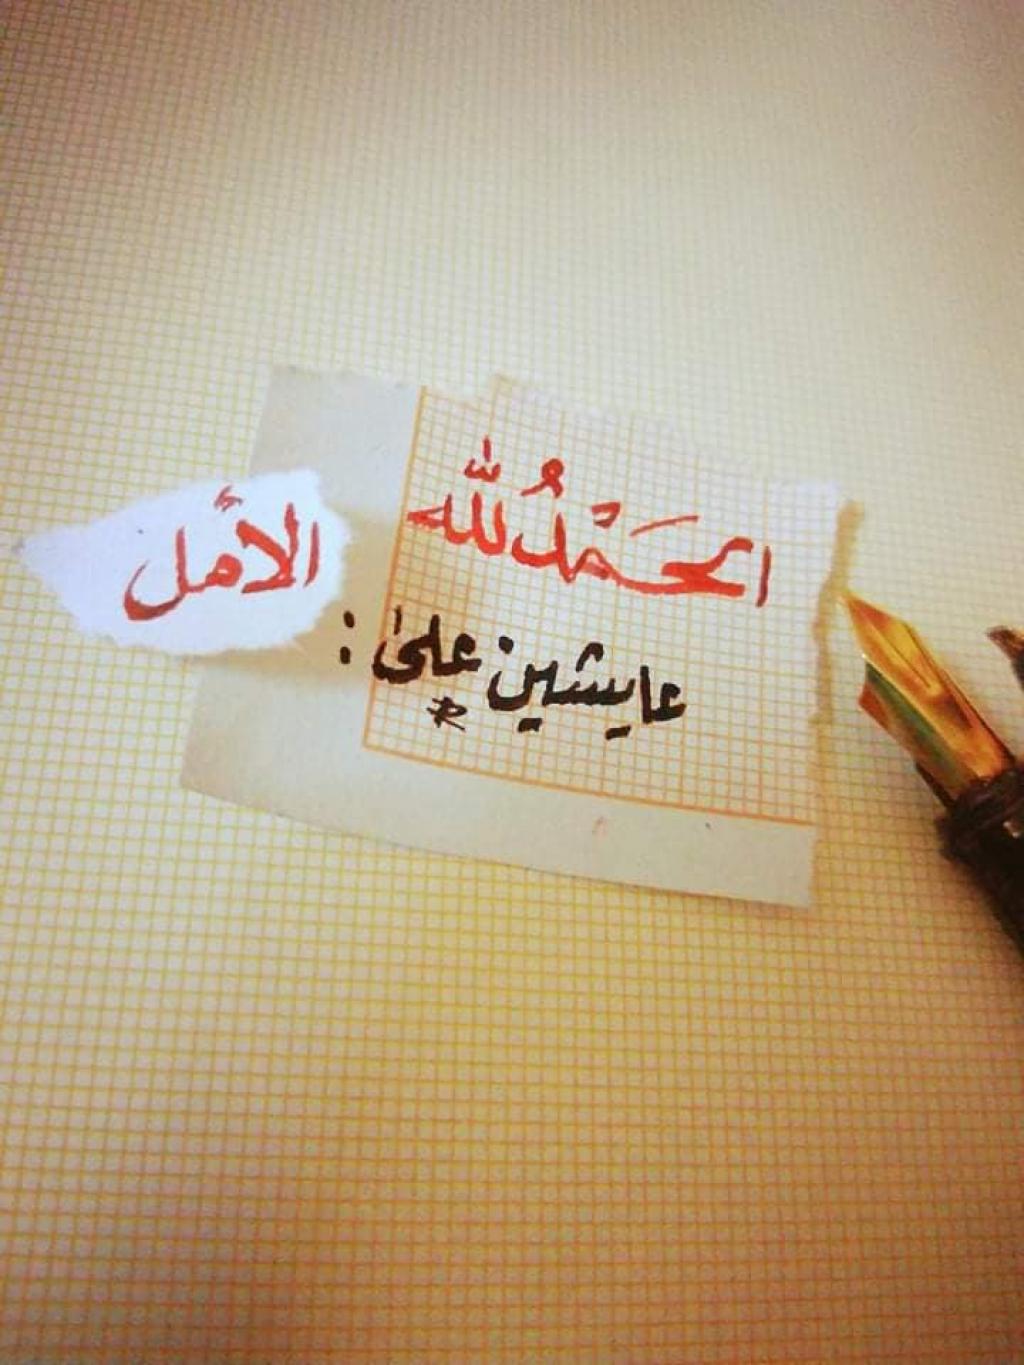 الحَمْدُ لله
عايشين على :
الأمل